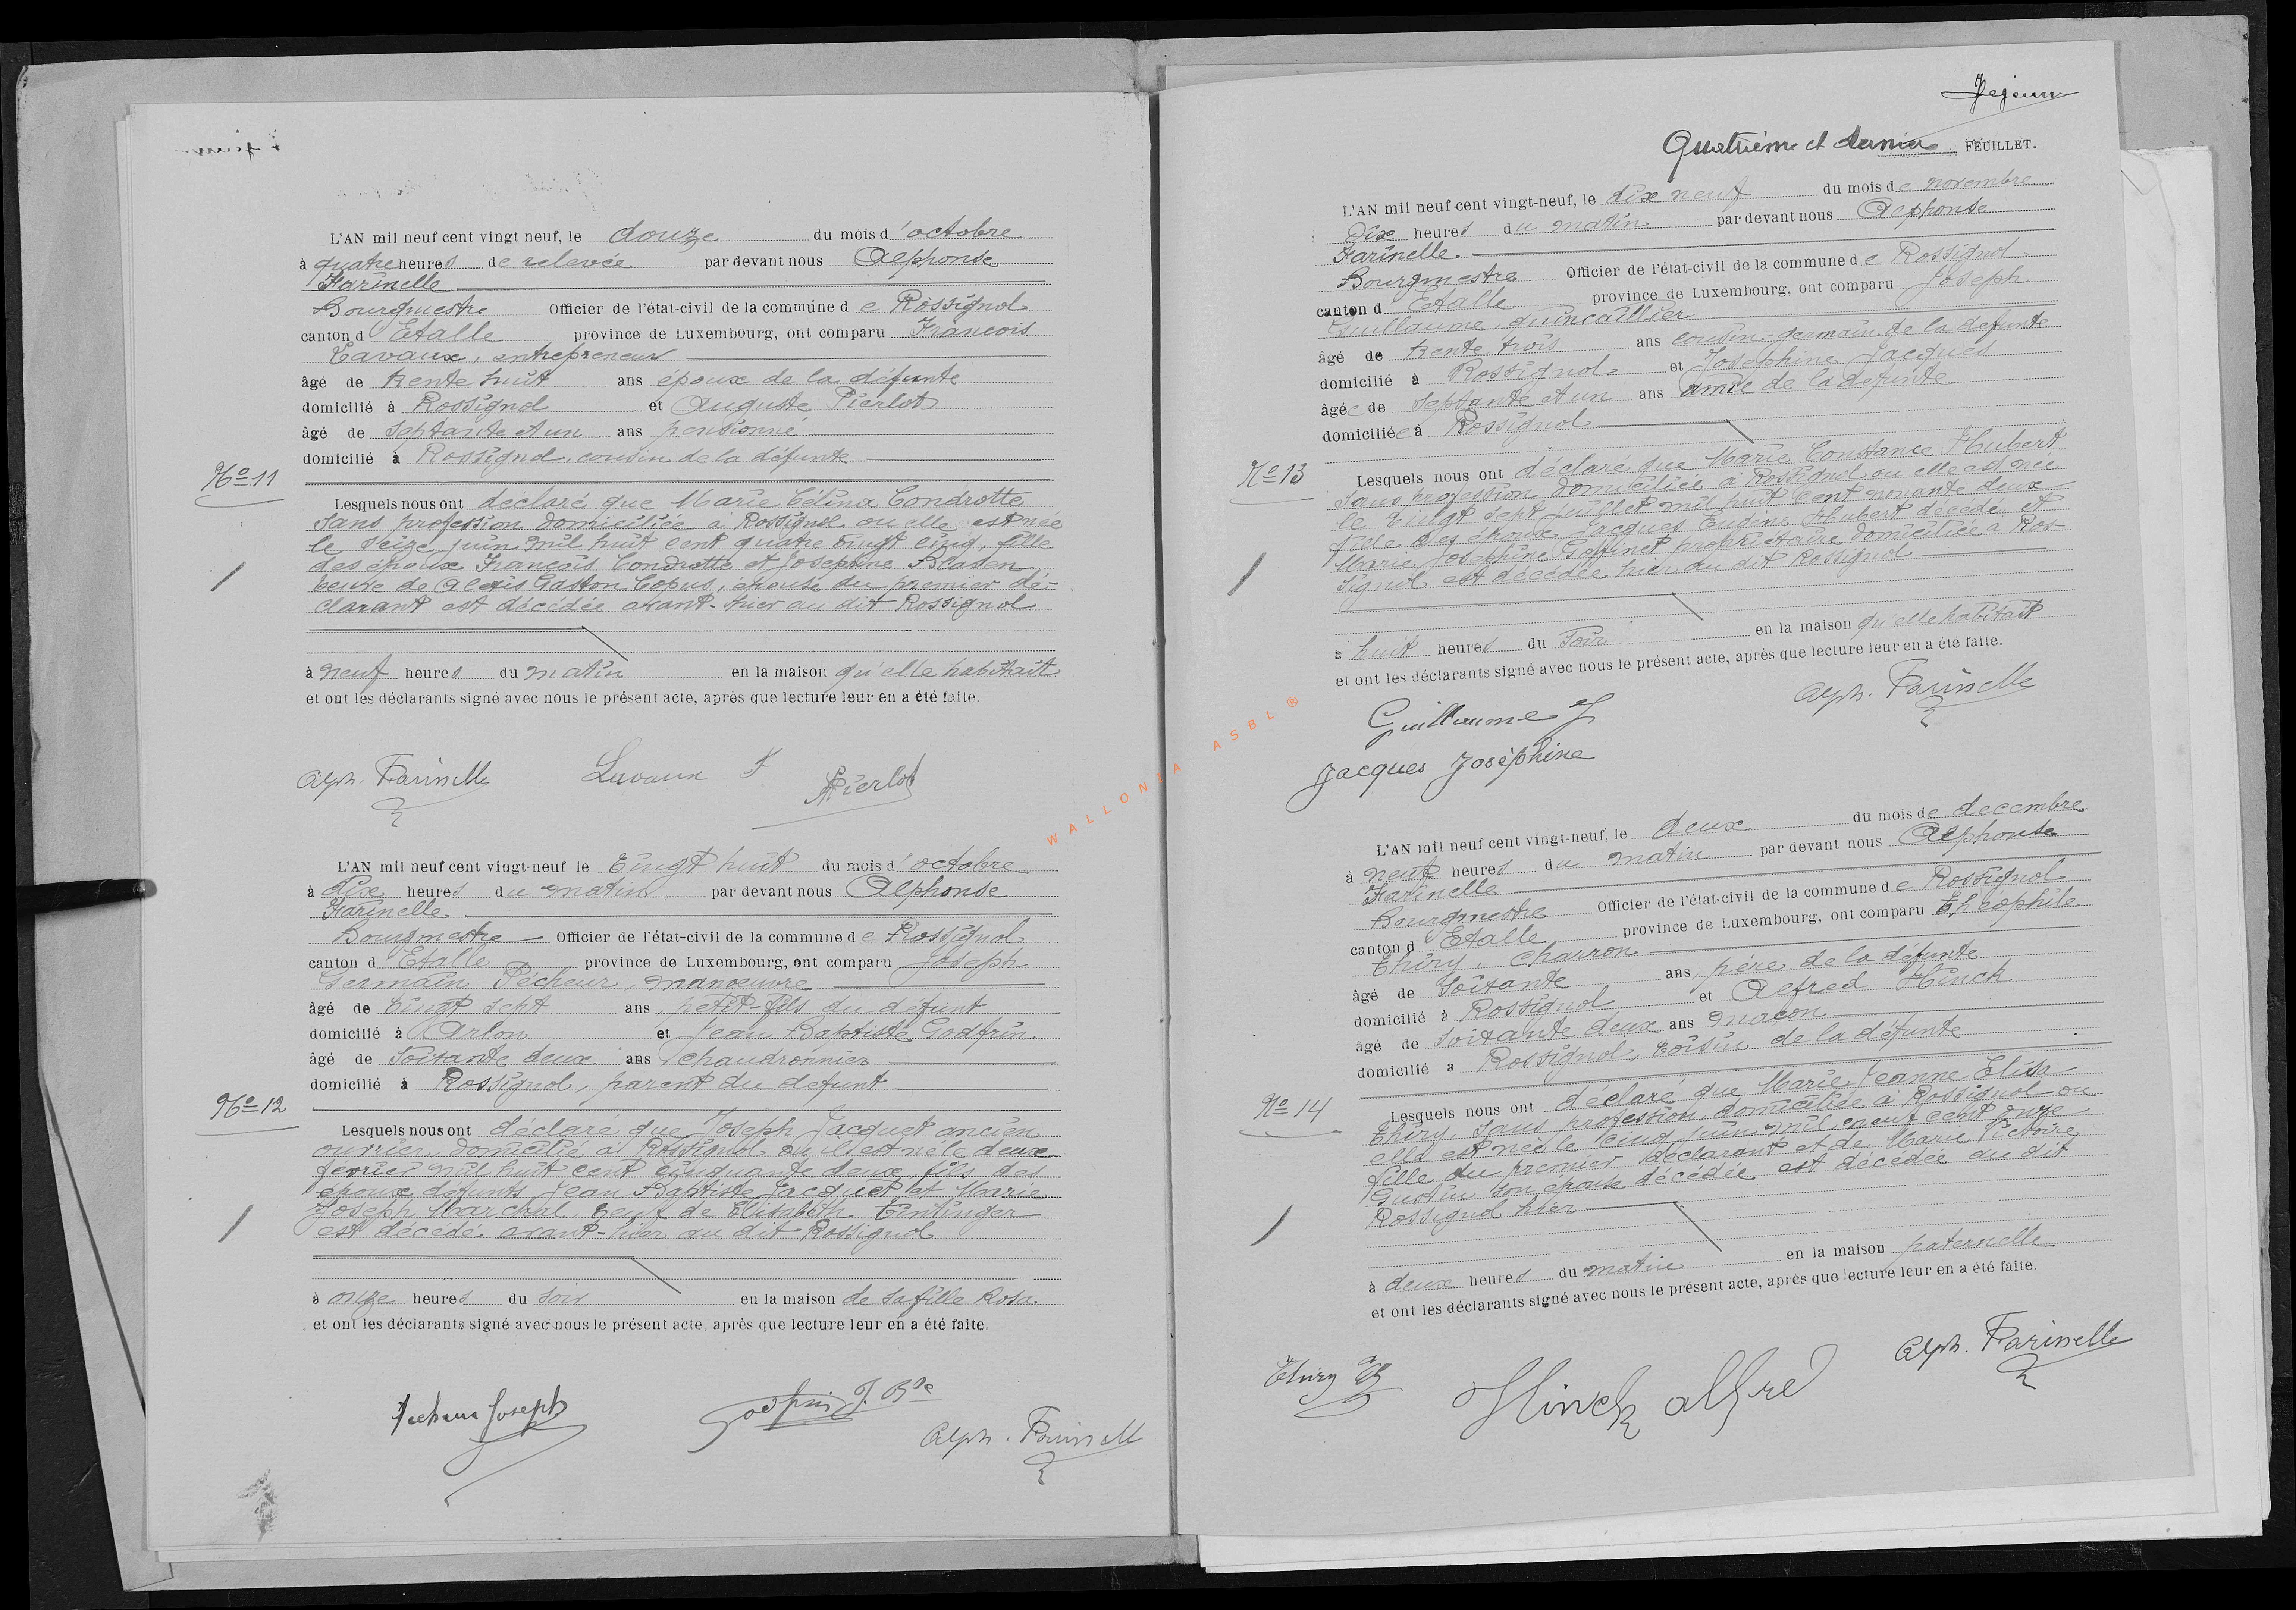 L'AN mil neuf cent vingt neuf, le douze du mois d'octobre
à quatre heures de relevée par devant nous Alphonse
Farinelle
Bourgmestre Officier de l'état-civil de la commune de Rossignol
canton d Etalle province de Luxembourg, ont comparu François
Lavaux, entrepreneur
âgé de trente huit ans époux de la défunte
domicilié à Rossignol et Auguste Pierlot
âgé de septante et un ans pensionné
domicilié à Rossignol, cousin de la défunte
No 11
Lesquels nous ont déclaré que Marie Célina Condrotte
sans profession domiciliée a Rossignol ou elle est née
le seize juin mil huit cent quatre vingt cinq, fille
des époux François Condrotte et Joséphine Blasen,
veuve de Alexis Gaston Copus, épouse du premier dé-
clarant est décédée avant-hier au dit Rossignol
à neuf heures du matin en la maison qu'elle habitait
et ont les déclarants signé avec nous le présent acte, après que lecture leur en a été faite.
Alph. Farinelle Lavaux F Pierlot
L'AN mil neuf cent vingt-neuf le vingt huit du mois d'octobre
à dix heures du matin par devant nous Alphonse
Farinelle
Bourgmestre Officier de l'état-civil de la commune de Rossignol
canton d Etalle province de Luxembourg, ont comparu Joseph
Germain Pécheur, manoeuvre
âgé de vingt sept ans, petit-fils du défunt
domicilié à Arlon et Jean Baptiste Godfrin
âgé de soixante deux ans chaudronnier
domicilié à Rossignol, parent du defunt
No 12
Lesquels nous ont déclaré que Joseph Jacquet ancien
ouvrier, domicilié à Rossignol ou il est né le deux
fevrier mil huit cent cinquante deux, fils des
epoux défunts Jean Baptiste Jacquet et Marie
Joseph Marchal, veuf de Elisabeth Tintinger
est décédé avant-hier au dit Rossignol
à onze heures du soir en la maison de sa fille Rosa.
et ont les déclarants signé avec nous le présent acte, après que lecture leur en a été faite.
Pecheur Joseph Godfrin J. Bte
Alph. Farinelle
Lejeune
Quatrième et dernier FEUILLET.
L'AN mil neuf cent vingt-neuf, le dix neuf du mois de novembre
Dix heures du matin par devant nous Alphonse
Farinelle.
Bourgmestre Officier de l'état-civil de la commune de Rossignol
canton d Etalle province de Luxembourg, ont comparu Joseph
Guillaume, quincaillier
âgé de trente trois ans cousin-germain de la defunte
domicilié à Rossignol et Josephine Jacques
âgée de septante et un ans amie de la defunte
domiciliée à Rossignol
No 13
Lesquels nous ont déclaré que Marie Constance Hubert
sans profession domiciliée a Rossignol ou elle est née
le vingt sept juillet mil huit cent nonante deux
fille des époux Jacques Eugène Hubert décédé et
Marie Josephine Goffinet propriétaire domiciliée à Ros-
signol est décédée hier au dit Rossignol
à huit heures du soir en la maison qu'elle habitait
et ont les déclarants signé avec nous le présent acte, après que lecture leur en a été faite.
Alph. Farinelle
Guillaume J
Jacques Joséphine
L'AN mil neuf cent vingt-neuf, le deux du mois de decembre
à neuf heures du matin par devant nous Alphonse
Farinelle
Bourgmestre Officier de l'état-civil de la commune de Rossignol
canton d Etalle province de Luxembourg, ont comparu Théophile
Thiry, charron
âgé de soixante ans, père de la défunte
domicilié à Rossignol et Alfred Hinck
âgé de soixante deux ans maçon
domicilié a Rossignol, voisin de la défunte
No 14
Lesquels nous ont déclaré que Marie Jeanne Elisa
Thiry, sans profession, domiciliée a Rossignol ou
elle est née le cinq juin mil neuf cent onze
fille du premier déclarant et de Marie Victoire
Gustin son epouse décédée est décédée au dit
Rossignol hier
à deux heures du matin en la maison paternelle
et ont les déclarants signé avec nous le présent acte, après que lecture leur en a été faite.
Alph. Farinelle
Thiry Th
Hinck alfred
WALLONIA ASBL ®